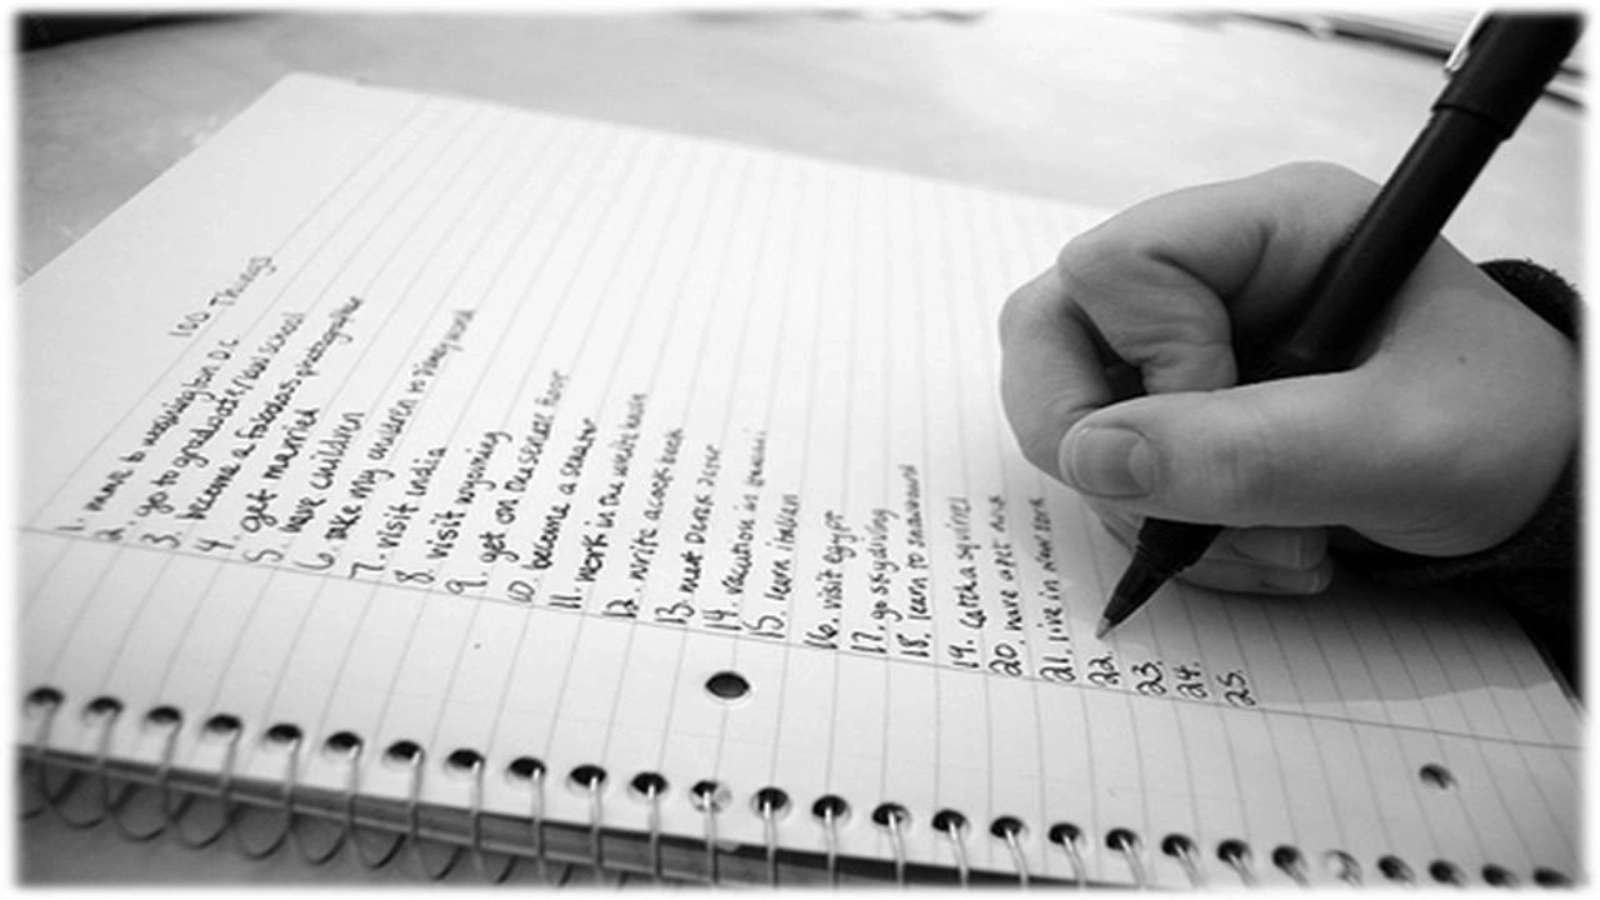 100 Things
1. move to washington DC
2. go to graduate/law school
3. become a fabulous photographer
4. get married
5. have children
6. take my children to Disney world
7. visit india
8. visit wyoming
9. get on the senate floor
10. become a senator
11. work in the white house
12. write a cook book
13. meet Derek Jeter
14. vacation in
15. learn italian
16. visit egypt
17. go skydiving
18. learn to
19. catch a squirrel
20. have a pet
21. live in New York
22.
23.
24.
25.